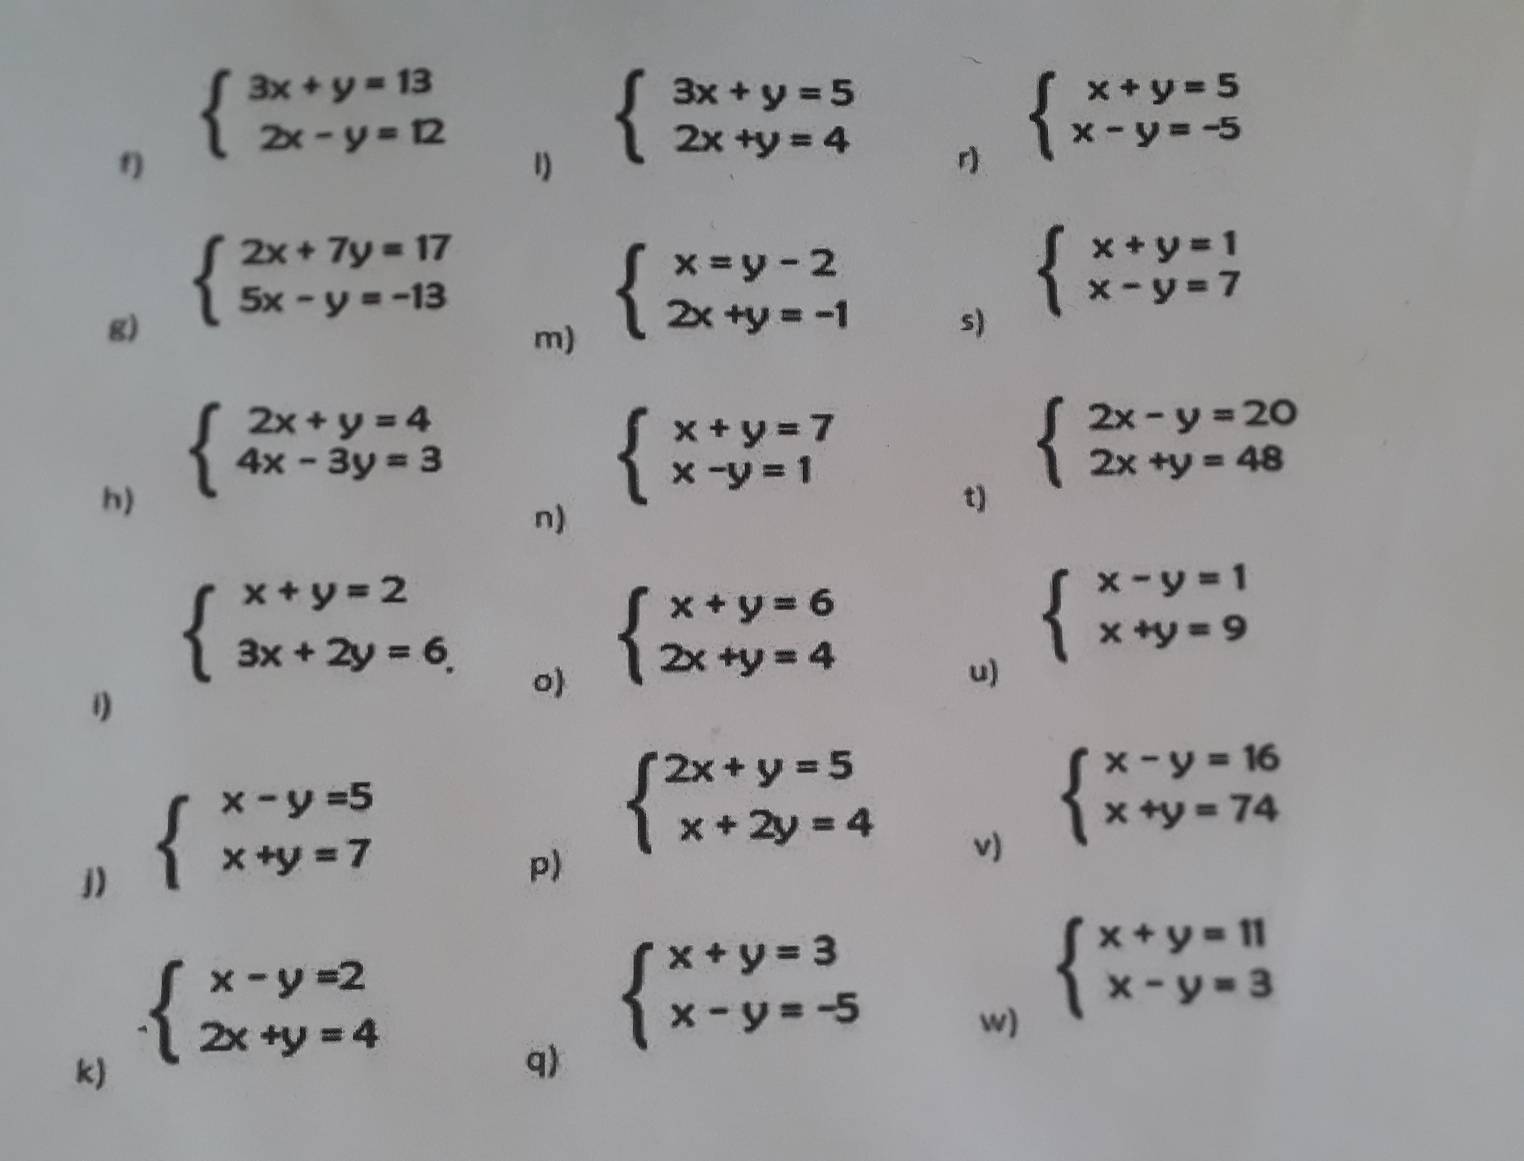 3x + y = 13
2x - y = 12
f)
2x + 7y = 17
5x - y = -13
g)
2x + y = 4
4x - 3y = 3
h)
x + y = 2
3x + 2y = 6.
i)
x - y =5
x +y = 7
j)
x - y =2
2x +y = 4
k)
3x + y = 5
2x +y = 4
l)
x = y - 2
2x +y = -1
m)
x + y = 7
x -y = 1
n)
x + y = 6
2x +y = 4
o)
2x + y = 5
x + 2y = 4
p)
x + y = 3
x - y = -5
q)
x + y = 5
x - y = -5
r)
x + y = 1
x - y = 7
s)
2x - y = 20
2x +y = 48
t)
x - y = 1
x +y = 9
u)
x - y = 16
x +y = 74
v)
x + y = 11
x - y = 3
w)